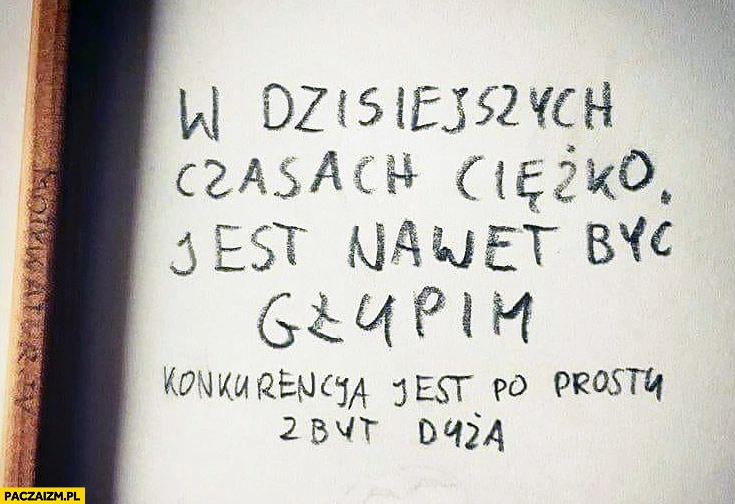 W DZISIEJSZYCH
CZASACH CIĘŻKO
JEST NAWET BYĆ
GŁUPIM
KONKURENCJA JEST PO PROSTU
ZBYT DUŻA
PACZAIZM.PL